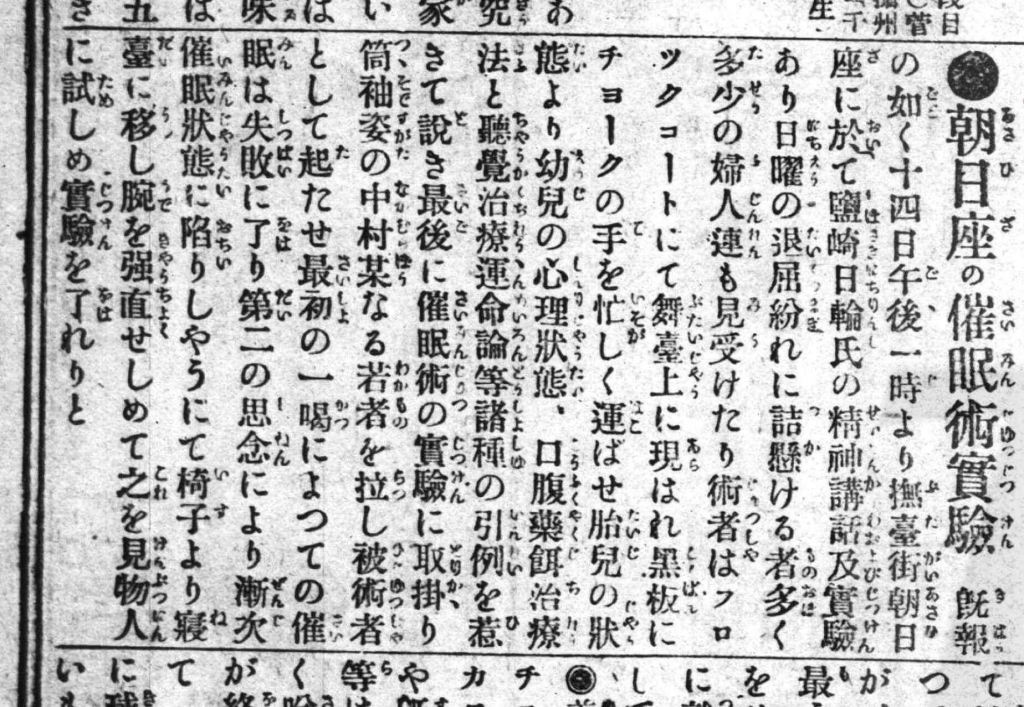 ●朝日座の催眠術實驗　既報
の如く十四日午後一時より撫臺街朝日
座に於て鹽崎日輪氏の精神講話及實驗
あり日曜の退屈紛れに詰懸ける者多く
多少の婦人連も見受けたり術者はフロ
ツクコートにて舞臺上に現はれ黑板に
チヨークの手を忙しく運ばせ胎兒の狀
態より幼兒の心理狀態、口腹藥餌治療
法と聽覺治療運命論等諸種の引例を惹
きて說き最後に催眠術の實驗に取掛り
筒袖姿の中村某なる若者を拉し被術者
として起たせ最初の一喝によつての催
眠は失敗に了り第二の思念により漸次
催眠狀態に陷りしやうにて椅子より寢
臺に移し腕を强直せしめて之を見物人
に試しめ實驗を了れりと